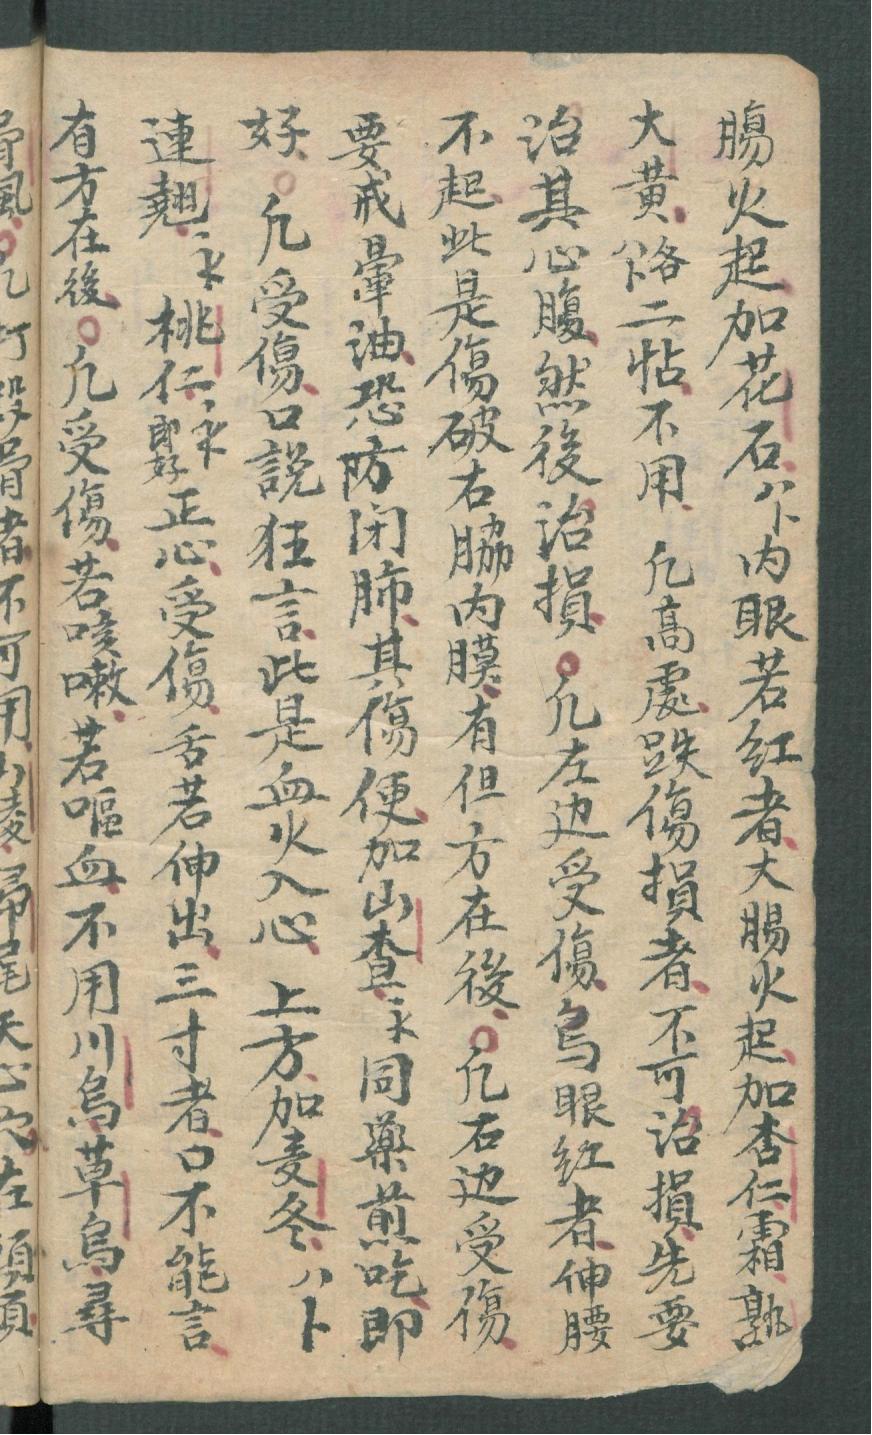 腸火起加花石八卜內眼若紅者大腸火起加杏仁霜熟
大黃八卜咯二帖不用凢髙處跌傷損者不可治損先要
治其心腹然後治損○凢左边受傷烏眼紅者伸腰
不起此是傷破右脇內膜有但方在後○凢右边受傷
要戒暈油恐防闭肺其傷便加山查同藥煎吃即
好○凢受傷口説狂言此是血火入心上方加麦冬八卜
連翹桃仁即好正心受傷舌若伸出三寸者口不能言
有方在後○凢受傷若咳嗽若嘔血不用川烏草烏尋
骨風○凢打段骨者不可用山棱歸尾天心穴在頭頂